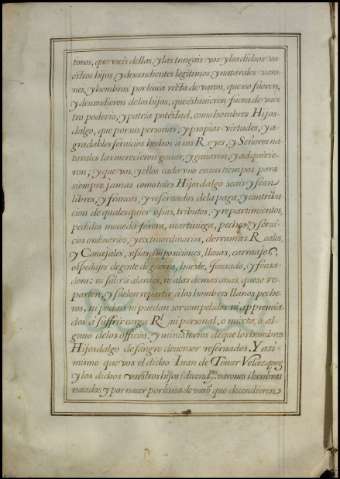 tonos, que useis dellas, y las tengais vos y los dichos vu
estros hijos y descendientes legitimos y naturales varo
nes, y hembras por linea recta de varon, que no fueren,
y descendieren de los hijos, que estuvieren fuera de vues
tro poderio, y patria potestad, como hombres Hijos
dalgo, que por sus personas, y propias virtudes, y a
gradables servicios hechos a los Reyes, y Señores na
turales las merecieron ganar, y ganaron, y adquirie
ron; y que vos, y ellos cada uno en sus tiempos para
siempre jamas como tales Hijosdalgo seais y sean
libres, y francos, y reservados de la paga y contribu
cion de qualesquier pechos, tributos, y repartimientos,
pedidos moneda forera, martiniega, pechos y servi
cios ordinarios, y extraordinarios, derramas Reales,
y Concejales, sisas, imposiciones, llevas, carruajes,
ospedajes de gente de guerra, puente, fonsado, y fonsa
dera; ni salir a alardes, ni a las demas cosas, que se re
parten, y suelen repartir a los hombres llanos peche
ros, ni podais ni puedan ser compelidos, ni apremia
dos a sufrir carga Rl. ni personal, o mixta, o al
guno de los officios, y ministerios de que los hombres
Hijosdalgo de sangre deven ser reservados. Y assi
mismo que vos el dicho Iuan de Tovar Velazquez
y los dichos vuestros hijos y descendtes. varones, y hembras
nacidos, y por nacer por linea de varon que descendieren